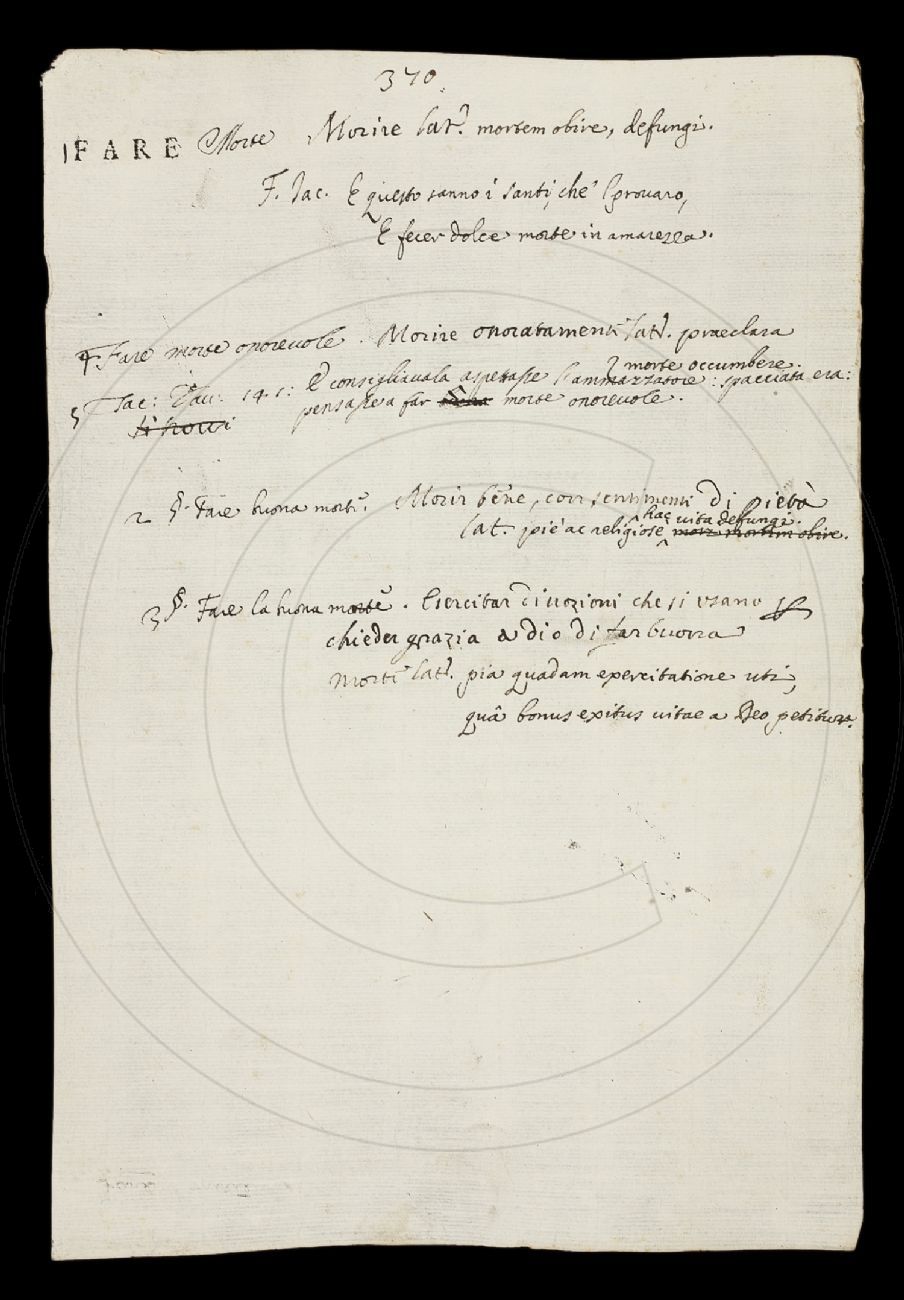 370.
FARE Morte Morire lat. mortem obire, defungi.
F. Jac. E questo sanno i Santi, che' l provaro,
E fecer dolce morte in amarezza.
Fare morte onorevole. Morire onoratamente lat. praeclara
morte occumbere.
Tac: Dav: 141: E consigliavala aspettasse l'ammazzatore: spacciata era:
pensasse a far morte onorevole.
2 §. Fare buona morte. Morir bene, con sentimenti di Pietà
hac vita defungi.
lat. piè ac religiose mortem obire.
3 §. Fare la buona morte. Esercitar divozioni che si usano
chieder grazia a Dio di far buona
morte lat. pia quadam exercitatione uti,
quâ bonus exitus vitae a Deo petitur.